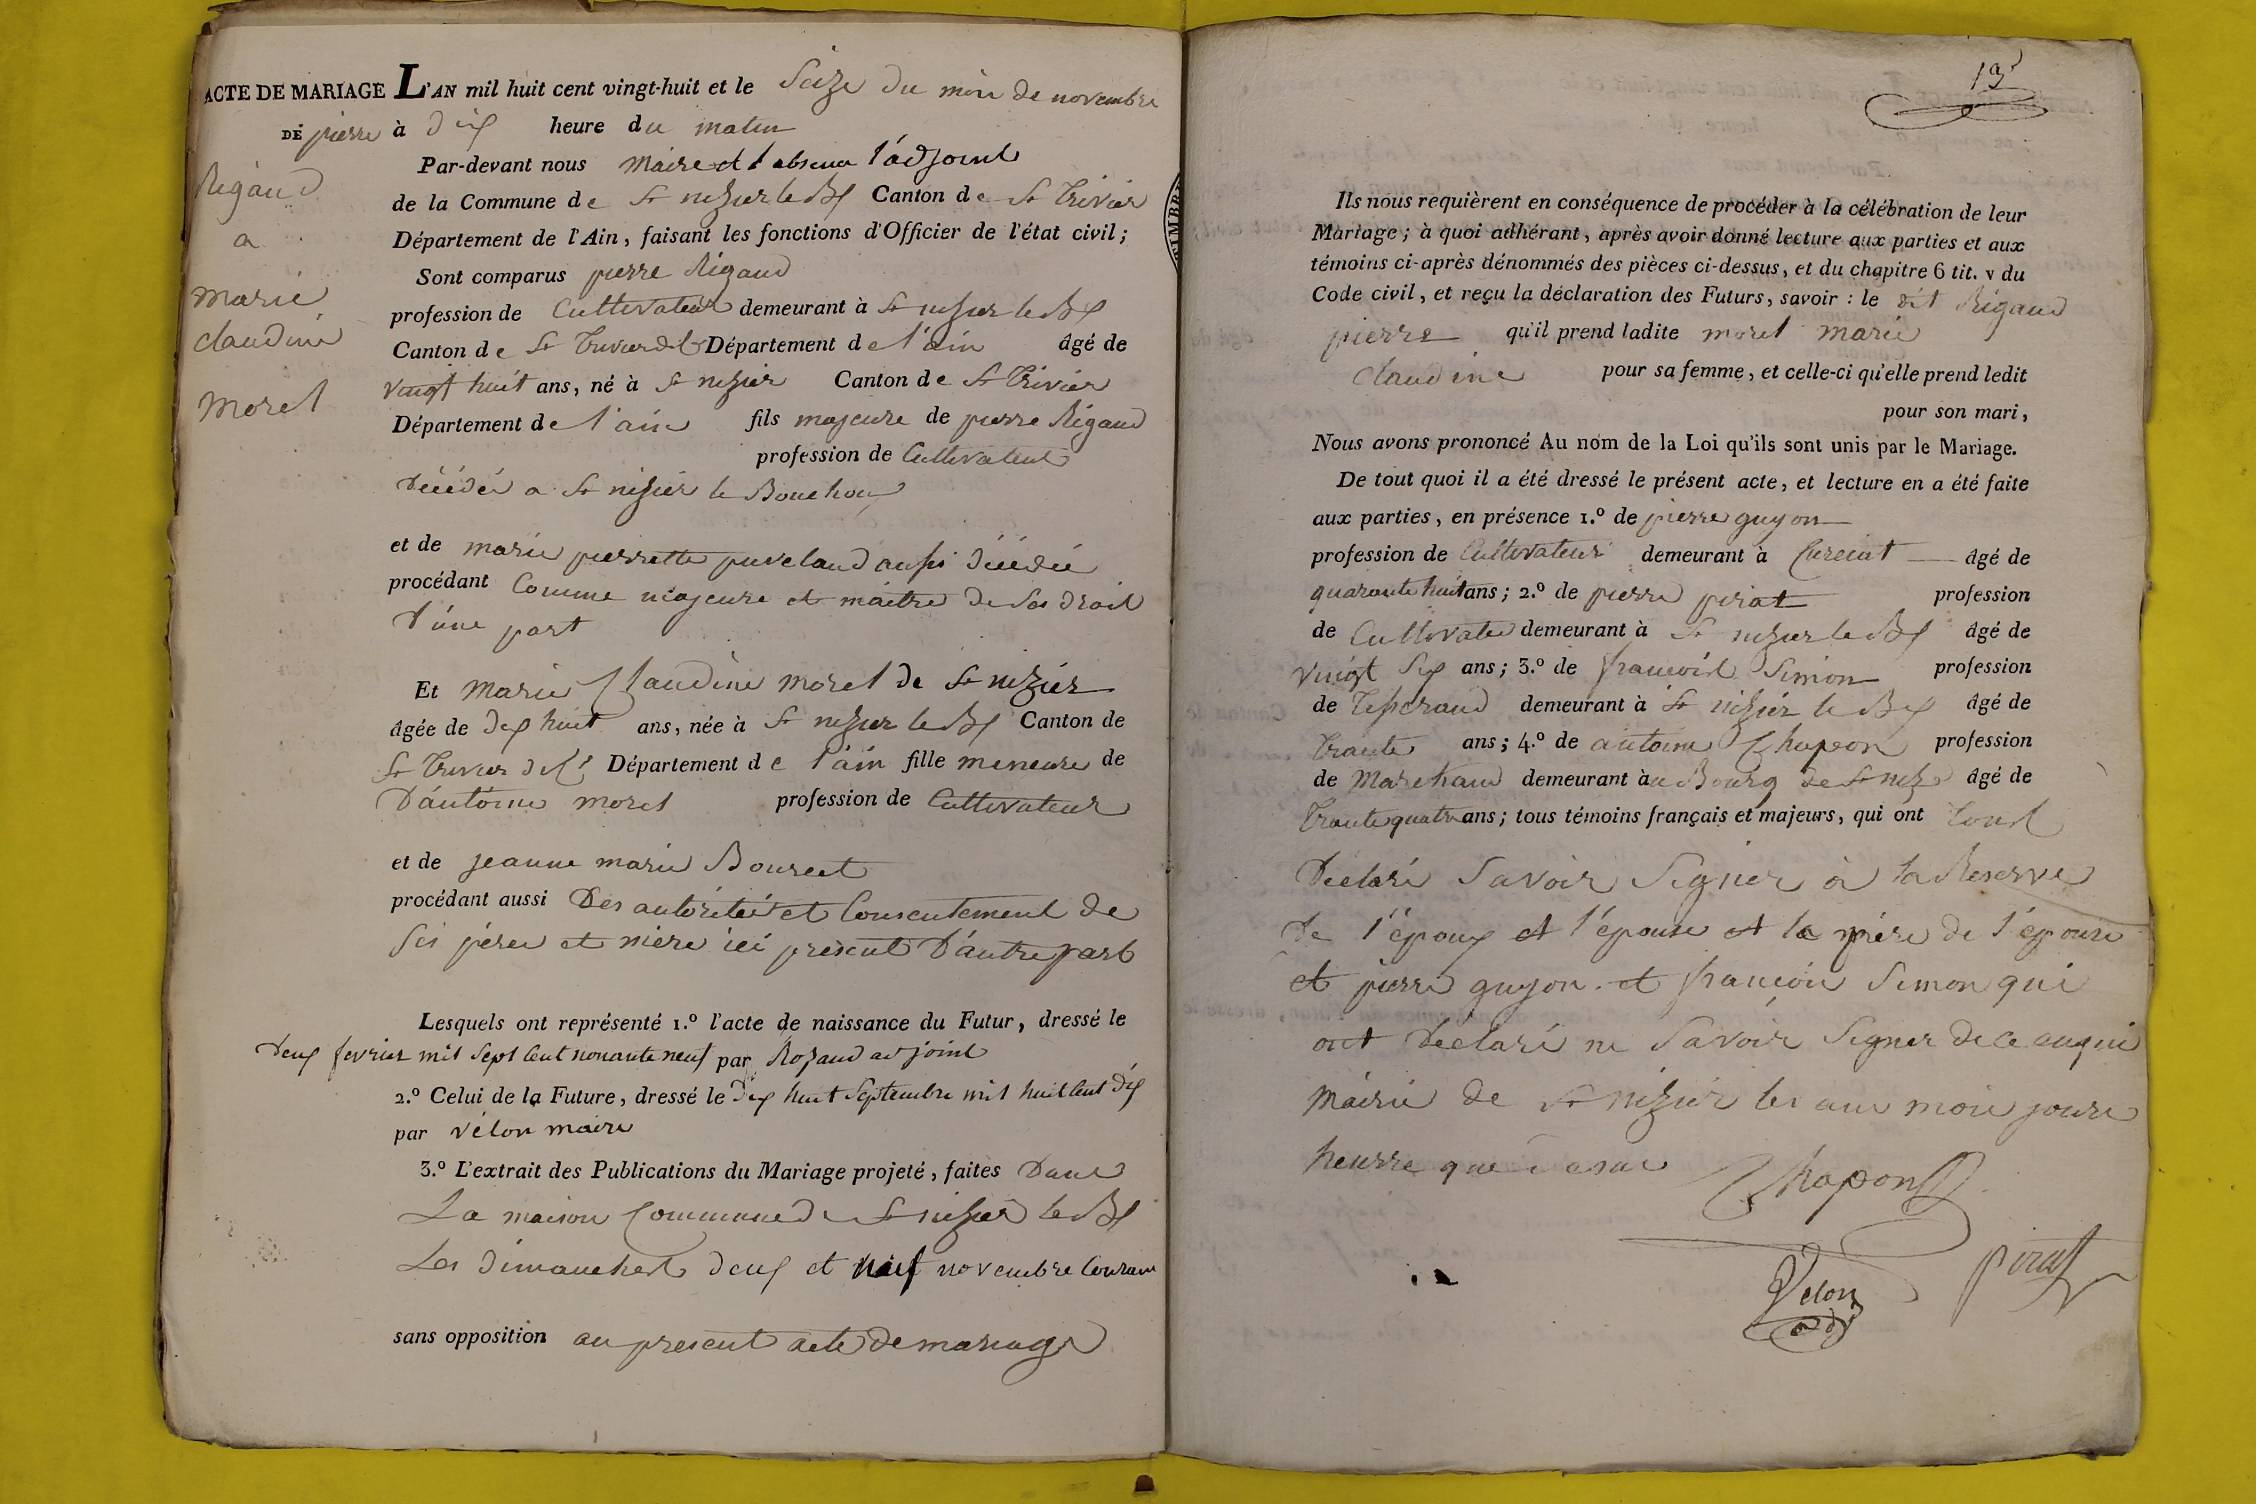 ACTE DE MARIAGE L'AN mil huit cent vingt-huit et le Seize du mois de novembre
DE pierre à dix heure du matin
Rigaud
a
marie
claudine
morel
Par-devant nous Maire et l'absence l'adjoint
de la Commune de St nizier le Bx Canton de St Trivier
Département de l'Ain, faisant les fonctions d'Officier de l'état civil;
Sont comparus pierre Rigaud
profession de Cultivateur demeurant à St nizier le Bx
Canton de St Trivier de Département de l'ain âgé de
vingt huit ans, né à St nizier Canton de St Trivier
Département de l'ain fils majeure de pierre Rigaud
profession de Cultivateur
décédé a St nizier le Bouchoux
et de marie pierrette puveland aussi décédée
procédant Comme majeure et maitre de ses droit
d'une part
Et Marie Claudine morel de St nizier
âgée de dix huit ans, née à St nizier le Bx Canton de
St Trivier de Ct Département de l'ain fille meneure de
D'antoine morel profession de Cultivateur
et de jeanne marie Bourcet
procédant aussi Des autorité et Consentement de
ses père et mère ici present D'autre part
Lesquels ont représenté 1.º l'acte de naissance du Futur, dressé le
deux fevrier mil sept cent nonante neuf par Rozand adjoint
2.º Celui de la Future, dressé le dix huit Septembre mil huit cent dix
par vélon maire
3.º L'extrait des Publications du Mariage projeté, faites Dans
La maison Commune de St nizier le Bx
Les dimanches deux et neuf novembre Courant
sans opposition au present acte de mariage
19
Ils nous requièrent en conséquence de procéder à la célébration de leur
Mariage; à quoi adhérant, après avoir donné lecture aux parties et aux
témoins ci-après dénommés des pièces ci-dessus, et du chapitre 6 tit. v du
Code civil, et reçu la déclaration des Futurs, savoir : le dit Rigaud
pierre qu'il prend ladite morel marie
claudine pour sa femme, et celle-ci qu'elle prend ledit
pour son mari,
Nous avons prononcé Au nom de la Loi qu'ils sont unis par le Mariage.
De tout quoi il a été dressé le présent acte, et lecture en a été faite
aux parties, en présence 1.º de pierre guyon
profession de Cultivateur demeurant à Curciat âgé de
quarante huit ans; 2.º de pierre pirat profession
de Cultivate demeurant à St nizier le Bx âgé de
vingt six ans; 3.º de francois Simon profession
de Tisserand demeurant à St nizier le Bx âgé de
trante ans; 4.º de antoine Chapon profession
de Marchand demeurant au Bourg de St niz âgé de
trante quatre ans; tous témoins français et majeurs, qui ont tous
Déclaré Savoir Signer à la Reserve
De l'époux et l'épouse et la mère de l'épouse
et pierre guyon et francois Simon qui
ont déclaré ne Savoir Signer de ce enquis
Mairie de St nizier les ans mois jours
heurre que
Chapon
pirat
Velon
adj